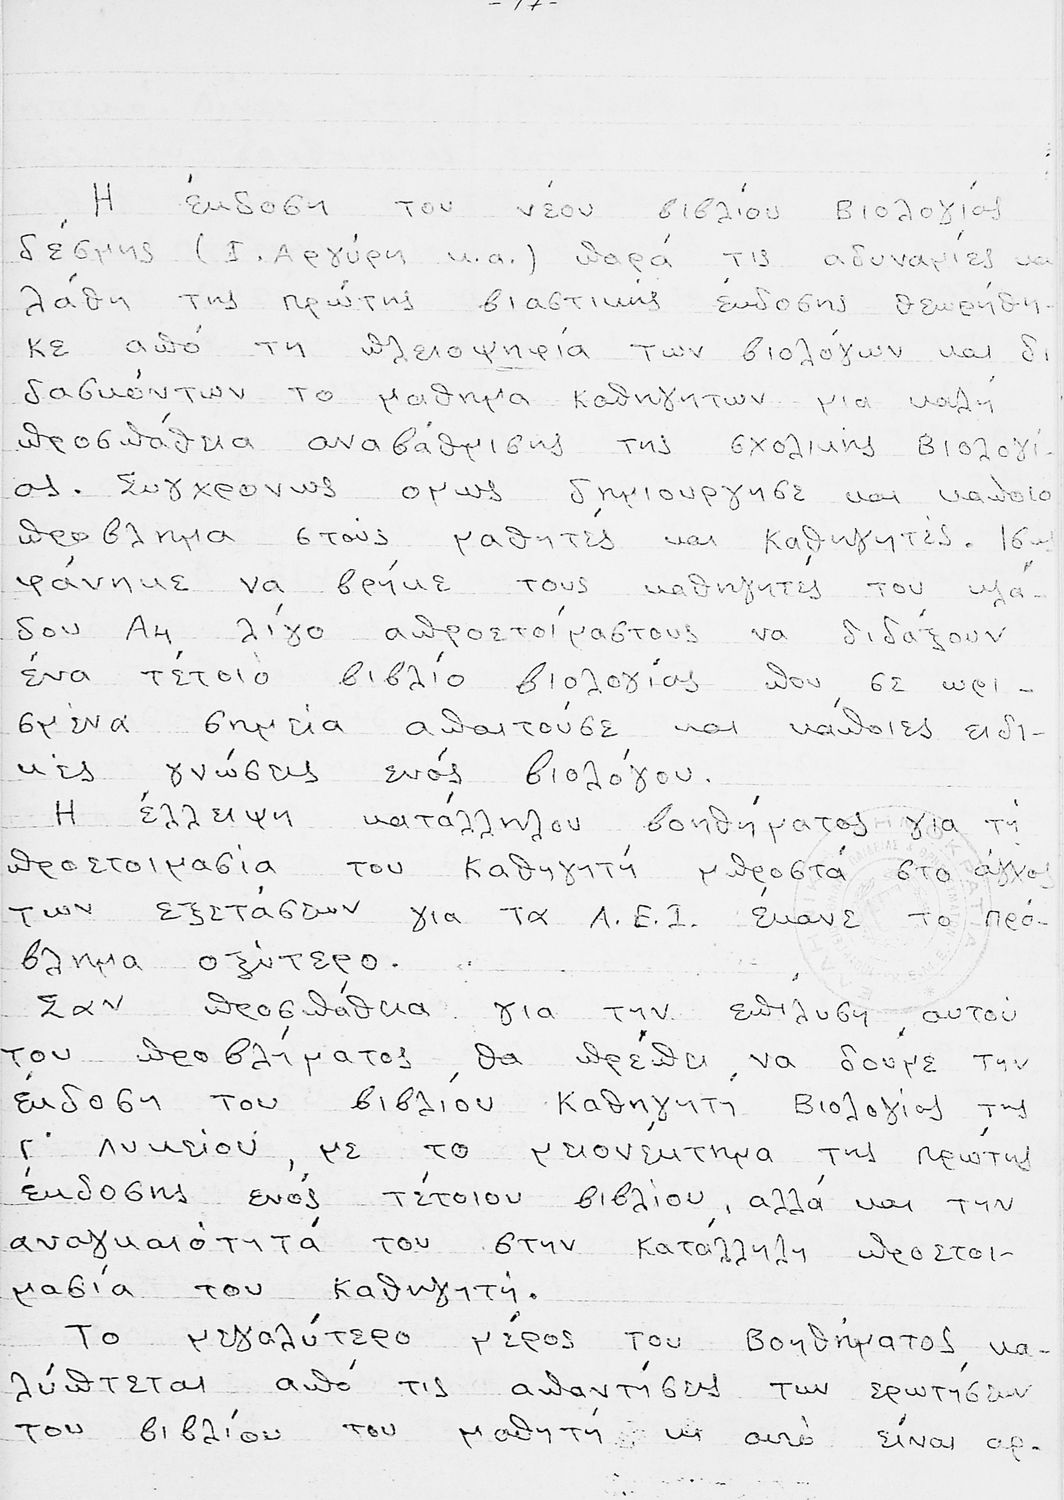 -17-
Η έκδοση του νέου βιβλίου Βιολογίας
δέσμης (Ι. Αργύρη κ.α.) παρά τις αδυναμίες κα
λάθη της πρώτης βιαστικής έκδοσης θεωρήθη-
κε από τη πλειοψηφία των βιολόγων και δι
δασκόντων το μάθημα καθηγητών μια καλή
προσπάθεια αναβάθμισης της σχολικής Βιολογί-
ας. Συγχρόνως όμως δημιούργησε και κάποιο
πρόβλημα στούς μαθητές και καθηγητές. Ισως
φάνηκε να βρήκε τους καθηγητές του κλά-
δου Α4 λίγο απροετοίμαστους να διδάξουν
ένα τέτοιο βιβλίο βιολογίας που σε ωρι-
σμένα σημεία απαιτούσε και κάποιες ειδι-
κές γνώσεις ενός βιολόγου.
Η έλλειψη κατάλληλου βοηθήματος για τή
προετοιμασία του καθηγητή μπροστά στο άγχος
των εξετάσεων για τα Α.Ε.Ι. έκανε το πρό-
βλημα οξύτερο.
Σαν προσπάθεια για την επίλυση αυτού
του προβλήματος θα πρέπει να δούμε την
έκδοση του βιβλίου Καθηγητή Βιολογίας της
Γ' Λυκείου, με το μειονέκτημα της πρώτης
έκδοσης ενός τέτοιου βιβλίου, αλλά και την
αναγκαιότητά του στην κατάλληλη προετοι-
μασία του καθηγητή.
Το μεγαλύτερο μέρος του Βοηθήματος κα-
λύπτεται από τις απαντήσεις των ερωτήσεων
του βιβλίου του μαθητή κι αυτό είναι αρ-